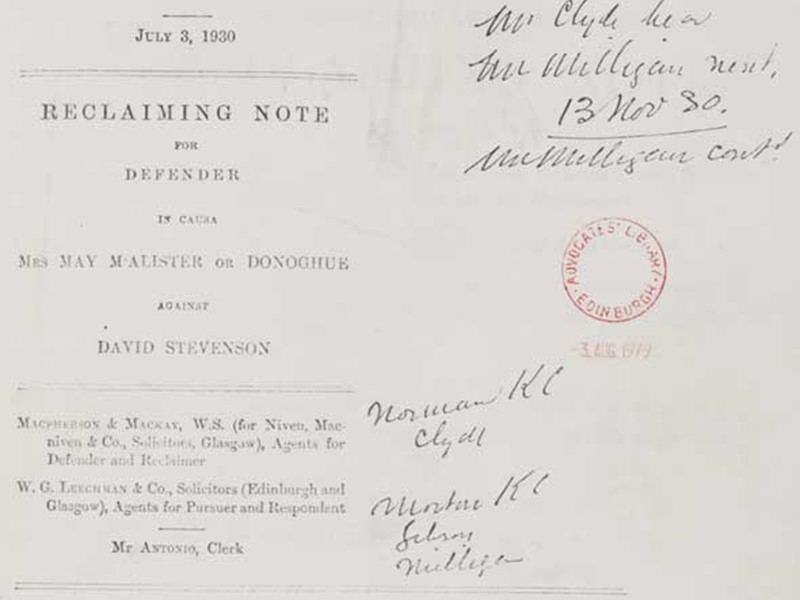 JULY 3, 1930
RECLAIMING NOTE
FOR
DEFENDER
IN CAUSA
MRS MAY M'ALISTER OR DONOGHUE
AGAINST
DAVID STEVENSON
MACPHERSON & MACKAY, W.S. (for Niven, Mac-
niven & Co., Solicitors, Glasgow), Agents for
Defender and Reclaimer
W. G. LEECHMAN & Co., Solicitors (Edinburgh and
Glasgow), Agents for Pursuer and Respondent
Mr ANTONIO, Clerk
Mr Clyde
Mr Milligan
13 Nov 30.
Mr Milligan contd
ADVOCATES' LIBRARY
· EDINBURGH ·
-3 AUG 1979
Norman KC
Clyde
Morton KC
Gibson
Milligan